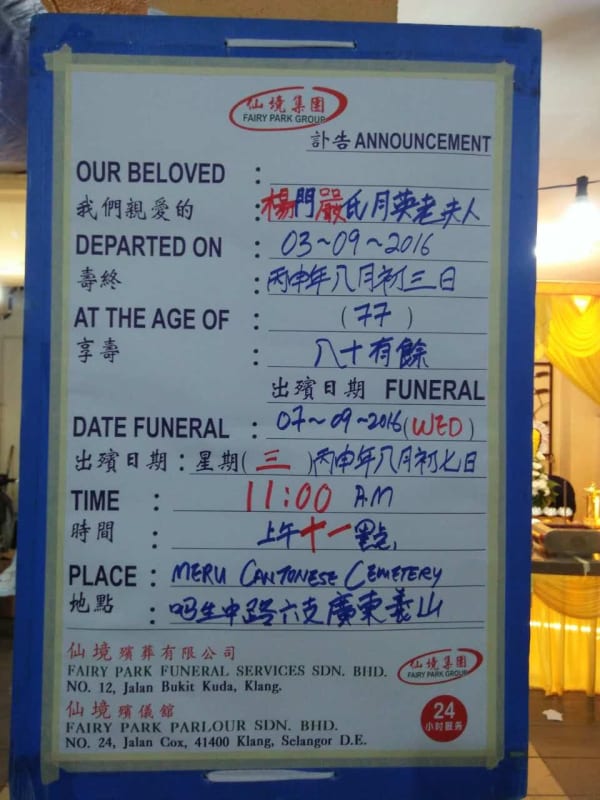 仙境集团
FAIRY PARK GROUP
訃告 ANNOUNCEMENT
OUR BELOVED :
我們親愛的 : 楊門嚴氏月英老夫人
DEPARTED ON : 03~09~2016
壽終 : 丙申年八月初三日
AT THE AGE OF : (77)
享壽 : 八十有餘
出殯日期 FUNERAL
DATE FUNERAL : 07~09~2016 (WED)
出殯日期 : 星期(三) 丙申年八月初七日
TIME : 11:00 A.M
時間 : 上午十一點
PLACE : MERU CANTONESE CEMETERY
地點 : 吗生中路六支廣東義山
仙境殯葬有限公司
FAIRY PARK FUNERAL SERVICES SDN. BHD.
NO. 12, Jalan Bukit Kuda, Klang.
仙境集团
FAIRY PARK GROUP
仙境殯儀館
FAIRY PARK PARLOUR SDN. BHD.
NO. 24, Jalan Cox, 41400 Klang, Selangor D.E.
24
小时服务